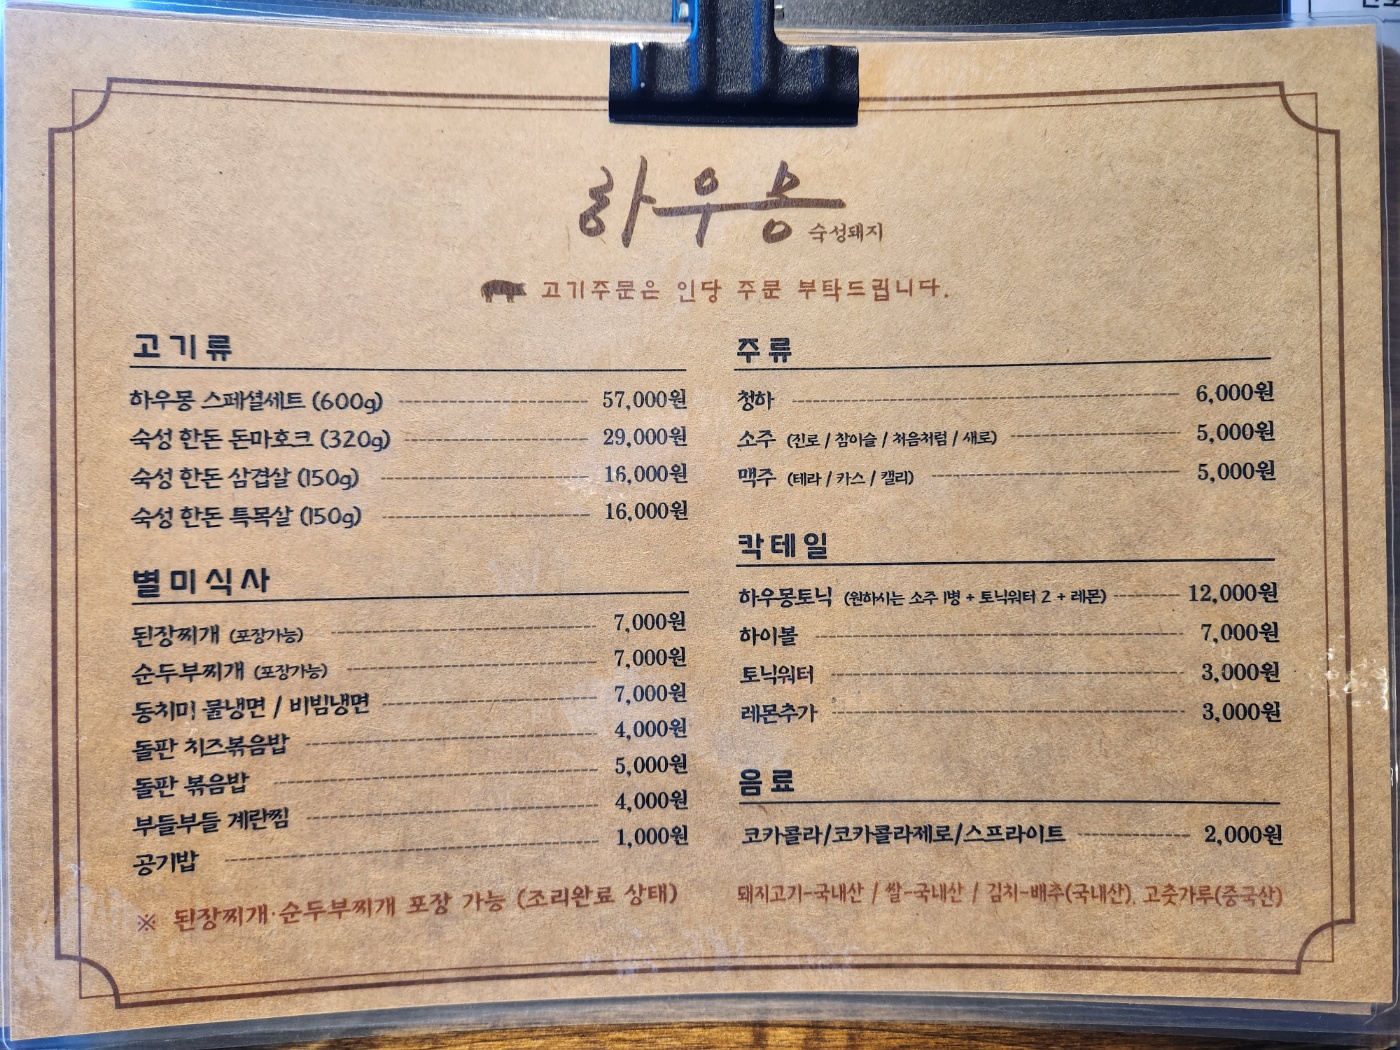 하우몽
숙성돼지
고기주문은 인당 주문 부탁드립니다.
고기류
하우몽 스페셜세트 (600g) 57,000원
숙성 한돈 돈마호크 (320g) 29,000원
숙성 한돈 삼겹살 (150g) 16,000원
숙성 한돈 특목살 (150g) 16,000원
별미식사
된장찌개 (포장가능) 7,000원
순두부찌개 (포장가능) 7,000원
동치미 물냉면 / 비빔냉면 7,000원
돌판 치즈볶음밥 4,000원
돌판 볶음밥 5,000원
부들부들 계란찜 4,000원
공기밥 1,000원
※ 된장찌개·순두부찌개 포장 가능 (조리완료 상태)
주류
청하 6,000원
소주 (진로 / 참이슬 / 처음처럼 / 새로) 5,000원
맥주 (테라 / 카스 / 캘리) 5,000원
칵테일
하우몽토닉 (원하시는 소주 1병 + 토닉워터 2 + 레몬) 12,000원
하이볼 7,000원
토닉워터 3,000원
레몬추가 3,000원
음료
코카콜라/코카콜라제로/스프라이트 2,000원
돼지고기-국내산 / 쌀-국내산 / 김치-배추(국내산), 고춧가루(중국산)